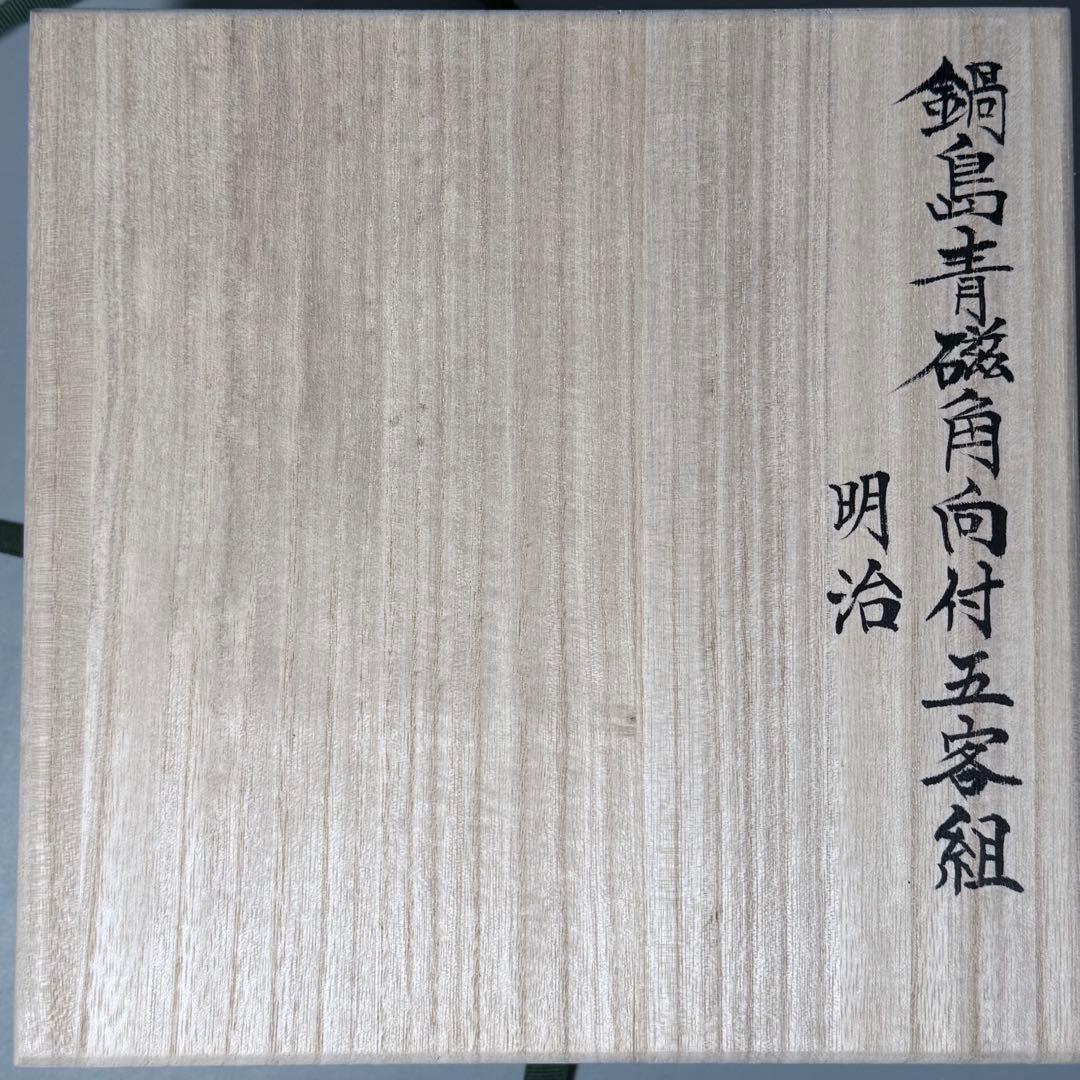 鍋島青磁角向付五客組
明治